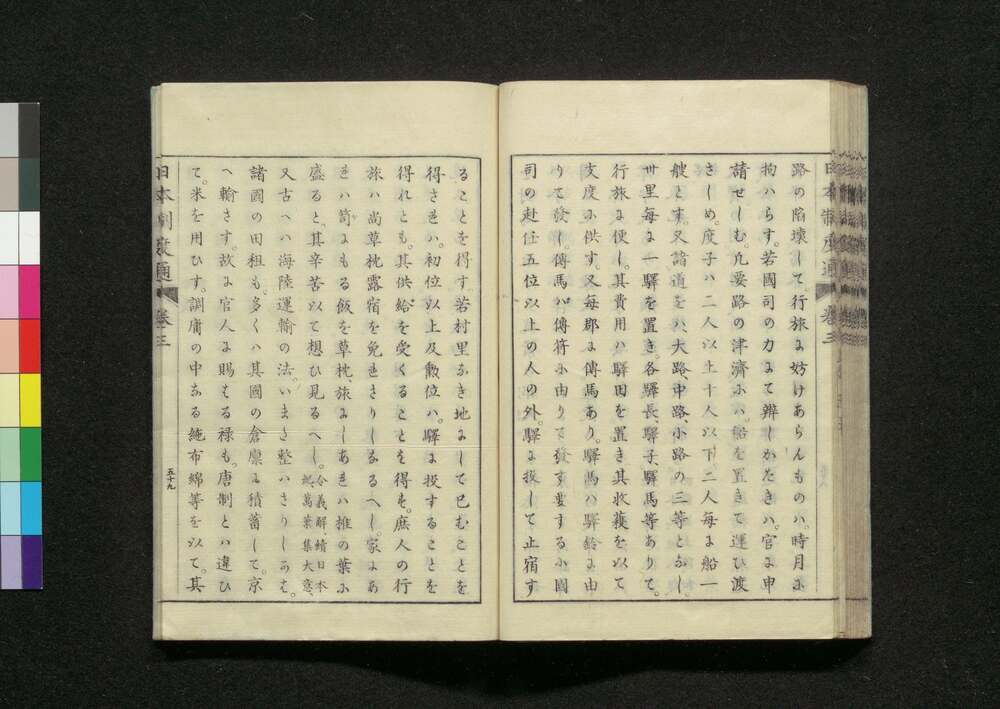 日本制度通 卷三
路の陷壞して行旅に妨けあらんものハ。時月に
拘ハらす。若國司の力にて辨しかたきハ。官に申
請せしむ。凡要路の津濟にハ。船を置きて運ひ渡
さしめ。度子ハ二人以上十人以下。二人每に船一
艘とす。又諸道をハ、大路、中路、小路の三等となし。
卅里每に一驛を置き。各驛長驛子、驛馬等ありて。
行旅に便し。其費用ハ驛田を置き其收穫を以て
支度に供す。又每郡に傳馬あり。驛馬ハ驛鈴に由
りて發し。傳馬ハ傳符に由りて發す。要するに國
司の赴任五位以上の人の外。驛に投して止宿す
ることを得す若村里なき地にして已むことを
得されハ。初位以上及勲位ハ。驛に投することを
得れとも。其供給を受くることを得も。庶人の行
旅ハ尚草枕露宿を免れさりしなるへし。家にあ
れハ笥にもる飯を草枕、旅にしあれハ椎の葉に
盛ると、其辛苦以て想ひ見るへし。令義解、續日本
紀、萬葉集大意、
又古へハ海陸運輸の法。いまた整ハさりしかは。
諸國の田租も。多くハ其國の倉廩に積蓄して。京
へ輸さす。故に官人に賜はる祿も。唐制とハ違ひ
て。米を用ひす。調庸の中なる絁布綿等を以て。其
日本制度通 卷三
五十九